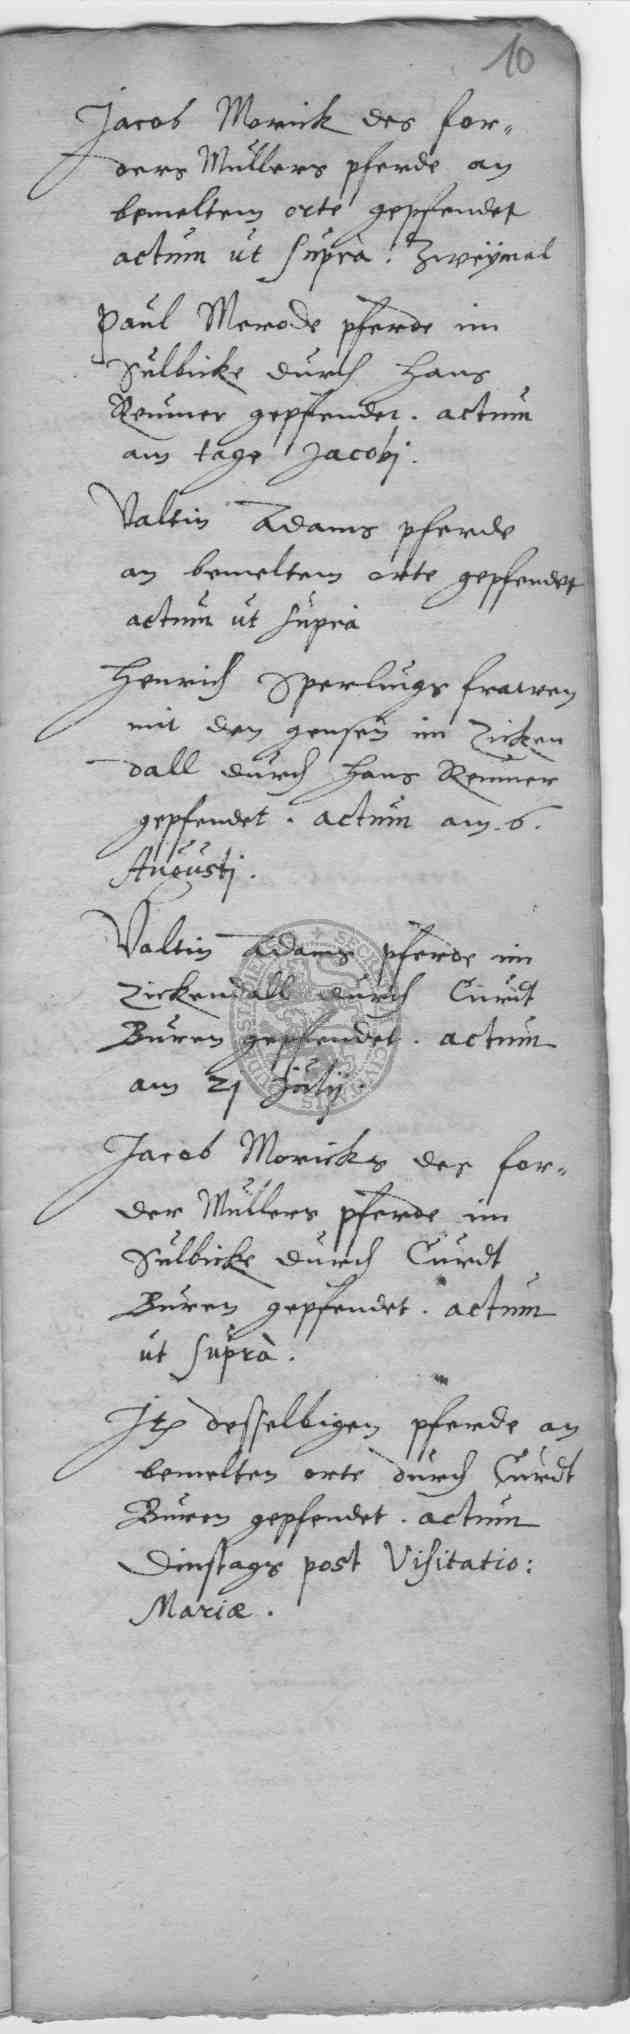 10
Jacob Morick des for-
ders Müllers pferde an
bemeltem orte gepfendet
actum ut supra. Zweymal
Paul Merode pferde im
Sülbicke durch Hans
Remmer gepfendet. actum
am tage Jacobj.
Valtin Adams pferde
an bemeltem orte gepfendet
actum ut supra
Henrich Sperlings frawen
mit den gensen im Zicken
dall durch Hans Remmer
gepfendet. actum am 6.
Augustj.
Valtin Adams pferde im
Zickendall durch Curdt
Buren gepfendet. actum
am 21 Julij.
Jacob Moricks des for-
der Müllers pferde im
Sülbicke durch Curdt
Buren gepfendet. actum
ut suprà.
Jtem desselbigen pferde an
bemelten orte durch Curdt
Buren gepfendet. actum
Dinstags post Visitatio:
Mariæ.